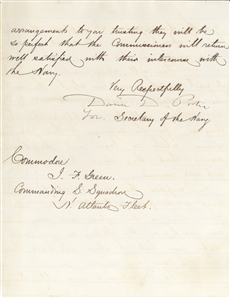 arrangements to you trusting they will be
so perfect that the Commissioners will return
well satisfied with their intercourse with
the Navy.
Very Respectfully
David D. Porter
For. Secretary of the Navy
Commodore
J. F. Green.
Commanding S Squadron
N. Atlantic Fleet.